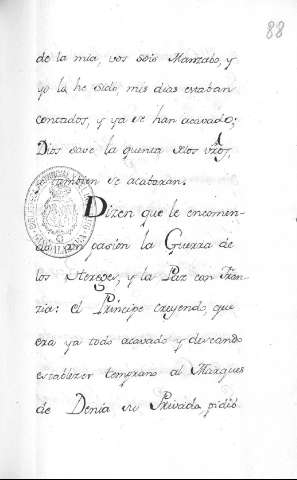 88
de la mia, vos sois Manzabo, y
yo la he sido, mis dias estaban
contados, y ya se han acavado;
Dios save la quenta delos vros,
tambien se acabaran.
Dizen que le encomen-
pasion la Guerra de
los Hereges, y la Paz con Fran-
zia: el Principe creyendo, que
era ya todo acavado y deseando
establezer temprano al Marques
de Denia su Privado, pidió